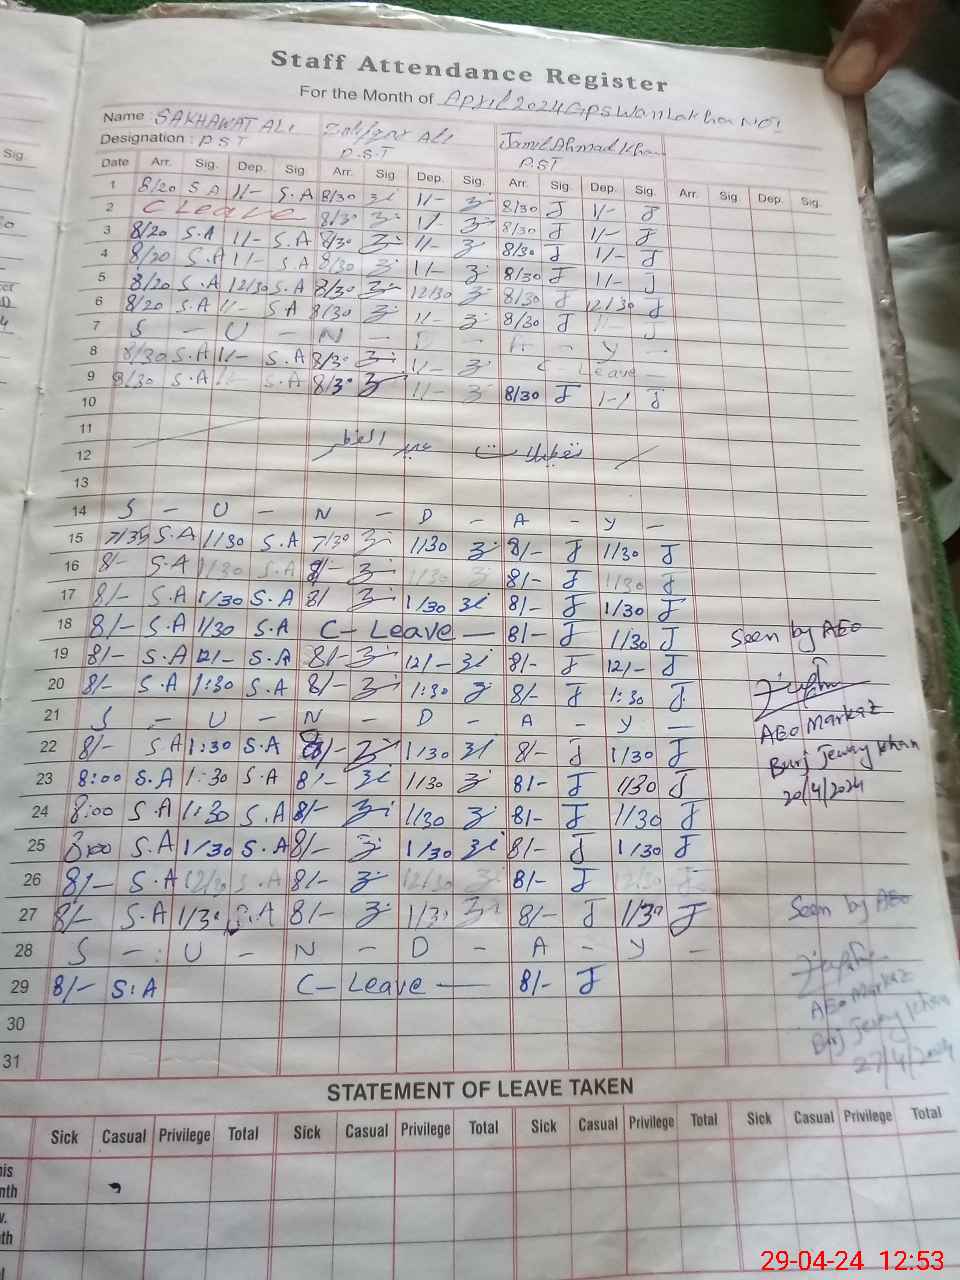 Staff Attendance Register
For the Month of April 2024 GPS Wan Lakha No1
Name : SAKHAWAT ALI Zulifqar ALI Jamil Ahmad Khan
Designation : P.S.T P.S.T PST
Date Arr. Sig. Dep. Sig. Arr. Sig. Dep. Sig. Arr. Sig. Dep. Sig. Arr. Sig Dep. Sig.
1 8/20 S.A 1/- S.A 8/30 1/- 8/30 J 1/- J
2 C Leave 8/30 1/- 8/30 J 1/- J
3 8/20 S.A 1/- S.A 8/30 1/- 8/30 J 1/- J
4 8/20 S.A 1/- S.A 8/30 1/- 8/30 J 1/- J
5 8/20 S.A 12/30 S.A 8/30 12/30 8/30 J 12/30 J
6 8/20 S.A 1/- S.A 8/30 1/- 8/30 J 1/- J
7 S - U - N - D - A - Y -
8 8/30 S.A 1/- S.A 8/30 1/- C - Leave -
9 8/30 S.A 1/- S.A 8/30 1/- 8/30 J 1-/ J
10
11
12 تعطیلات عید الفطر
13
14 S - U - N - D - A - Y -
15 7/35 S.A 1/30 S.A 7/30 1/30 8/- J 1/30 J
16 8/- S.A 1/30 S.A 8/- 1/30 8/- J 1/30 J
17 8/- S.A 1/30 S.A 8/ 1/30 8/- J 1/30 J
18 8/- S.A 1/30 S.A C- Leave - 8/- J 1/30 J Seen by AEO
19 8/- S.A 12/- S.A 8/- 12/- 8/- J 12/- J
20 8/- S.A 1:30 S.A 8/- 1:30 8/- J 1:30 J
21 S - U - N - D - A - Y - AEO Markaz
22 8/- S.A 1:30 S.A 8/- 1/30 8/- J 1/30 J Burj Jeway Khan
23 8:00 S.A 1:30 S.A 8/- 1/30 8/- J 1/30 J 20/4/2024
24 8:00 S.A 1:30 S.A 8/- 1/30 8/- J 1/30 J
25 8:00 S.A 1/30 S.A 8/- 1/30 8/- J 1/30 J
26 8/- S.A 12/30 S.A 8/- 12/30 8/- J 12/30 J
27 8/- S.A 1/30 S.A 8/- 1/30 8/- J 1/30 J Seen by AEO
28 S - U - N - D - A - Y -
29 8/- S.A C- Leave - 8/- J AEO Markaz
30 Burj Jeway Khan
31 27/4/2024
STATEMENT OF LEAVE TAKEN
Sick Casual Privilege Total Sick Casual Privilege Total Sick Casual Privilege Total Sick Casual Privilege Total
29-04-24 12:53